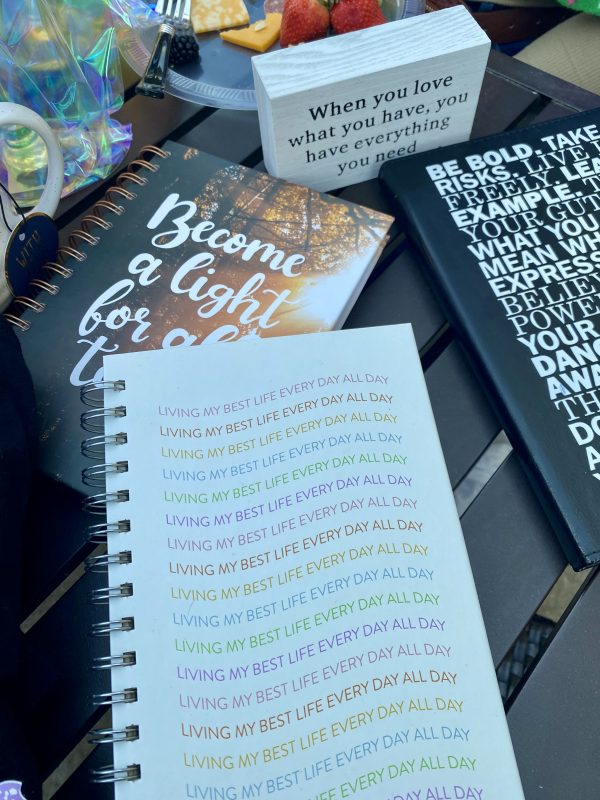 When you love
what you have, you
have everything
you need
BE BOLD. TAKE
RISKS. LIVE
FREELY.
EXAMPLE.
YOUR GUT
WHAT YOU
MEAN
EXPRESS
YOUR
WITH
Become
a light
for
LIVING MY BEST LIFE EVERY DAY ALL DAY
LIVING MY BEST LIFE EVERY DAY ALL DAY
LIVING MY BEST LIFE EVERY DAY ALL DAY
LIVING MY BEST LIFE EVERY DAY ALL DAY
LIVING MY BEST LIFE EVERY DAY ALL DAY
LIVING MY BEST LIFE EVERY DAY ALL DAY
LIVING MY BEST LIFE EVERY DAY ALL DAY
LIVING MY BEST LIFE EVERY DAY ALL DAY
LIVING MY BEST LIFE EVERY DAY ALL DAY
LIVING MY BEST LIFE EVERY DAY ALL DAY
LIVING MY BEST LIFE EVERY DAY ALL DAY
LIVING MY BEST LIFE EVERY DAY ALL DAY
LIVING MY BEST LIFE EVERY DAY ALL DAY
LIVING MY BEST LIFE EVERY DAY ALL DAY
LIVING MY BEST LIFE EVERY DAY ALL DAY
LIVING MY BEST LIFE EVERY DAY ALL DAY
LIFE EVERY DAY ALL DAY
ALL DAY